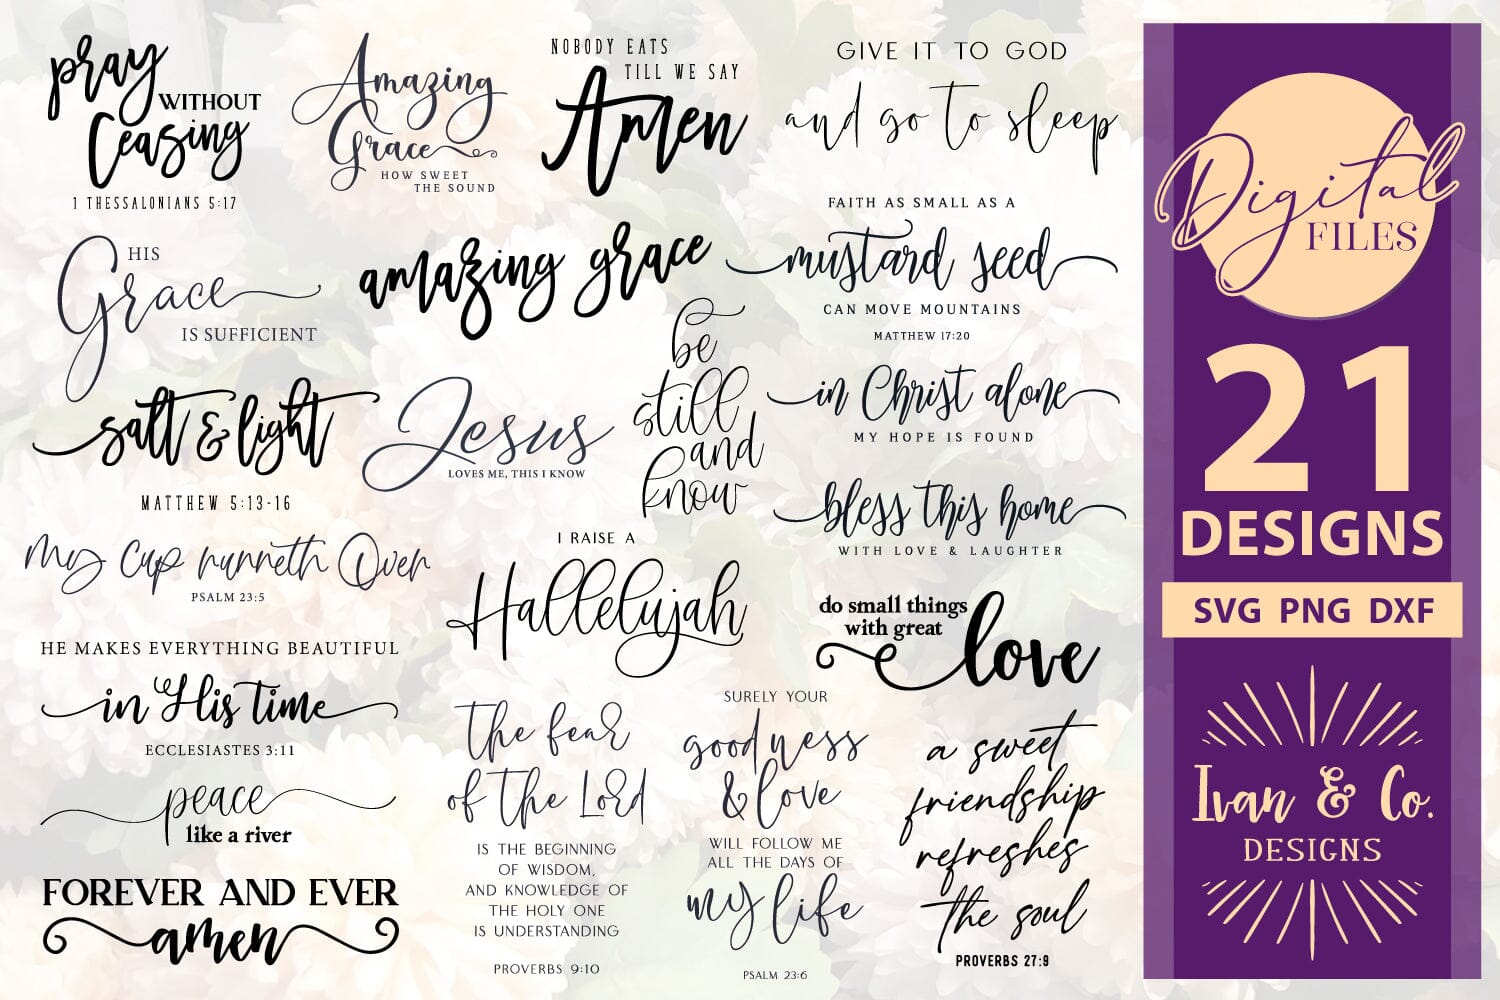 pray
WITHOUT
Ceasing
1 THESSALONIANS 5:17
Amazing
Grace
HOW SWEET
THE SOUND
NOBODY EATS
TILL WE SAY
Amen
GIVE IT TO GOD
and go to sleep
HIS
Grace
IS SUFFICIENT
amazing grace
FAITH AS SMALL AS A
mustard seed
CAN MOVE MOUNTAINS
MATTHEW 17:20
be
still
and
know
salt & light
MATTHEW 5:13-16
Jesus
LOVES ME, THIS I KNOW
in Christ alone
MY HOPE IS FOUND
bless this home
WITH LOVE & LAUGHTER
my cup runneth Over
PSALM 23:5
I RAISE A
Hallelujah
do small things
with great
love
HE MAKES EVERYTHING BEAUTIFUL
in His time
ECCLESIASTES 3:11
peace
like a river
FOREVER AND EVER
amen
the fear
of the Lord
IS THE BEGINNING
OF WISDOM,
AND KNOWLEDGE OF
THE HOLY ONE
IS UNDERSTANDING
PROVERBS 9:10
SURELY YOUR
goodness
& love
WILL FOLLOW ME
ALL THE DAYS OF
my life
PSALM 23:6
a sweet
friendship
refreshes
the soul
PROVERBS 27:9
Digital
FILES
21
DESIGNS
SVG PNG DXF
Ivan & Co.
DESIGNS